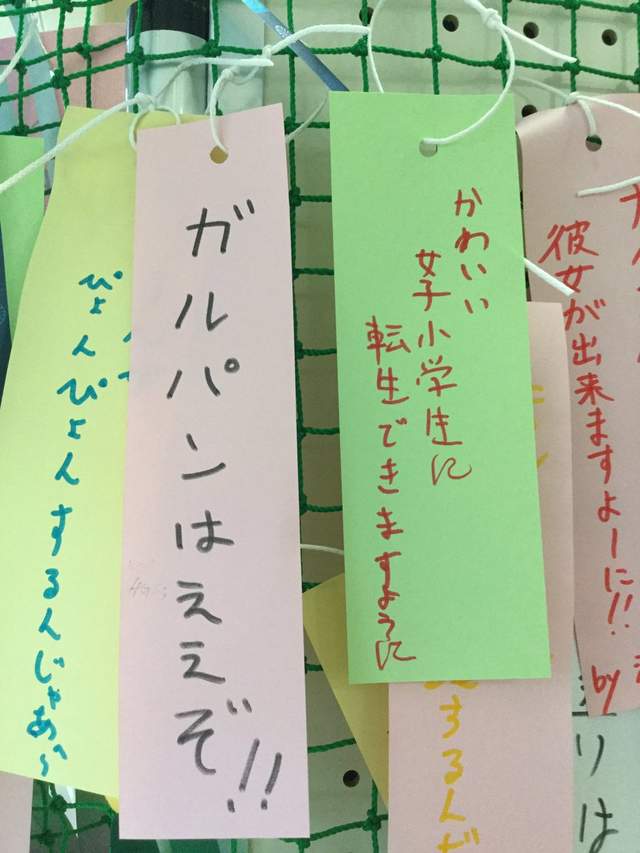 彼女が出来ますよーに!!
by
かわいい
女子小学生に
転生できますように
ガルパンはええぞ!!
ぴょんぴょんするんじゃあ~
するんだ
りは